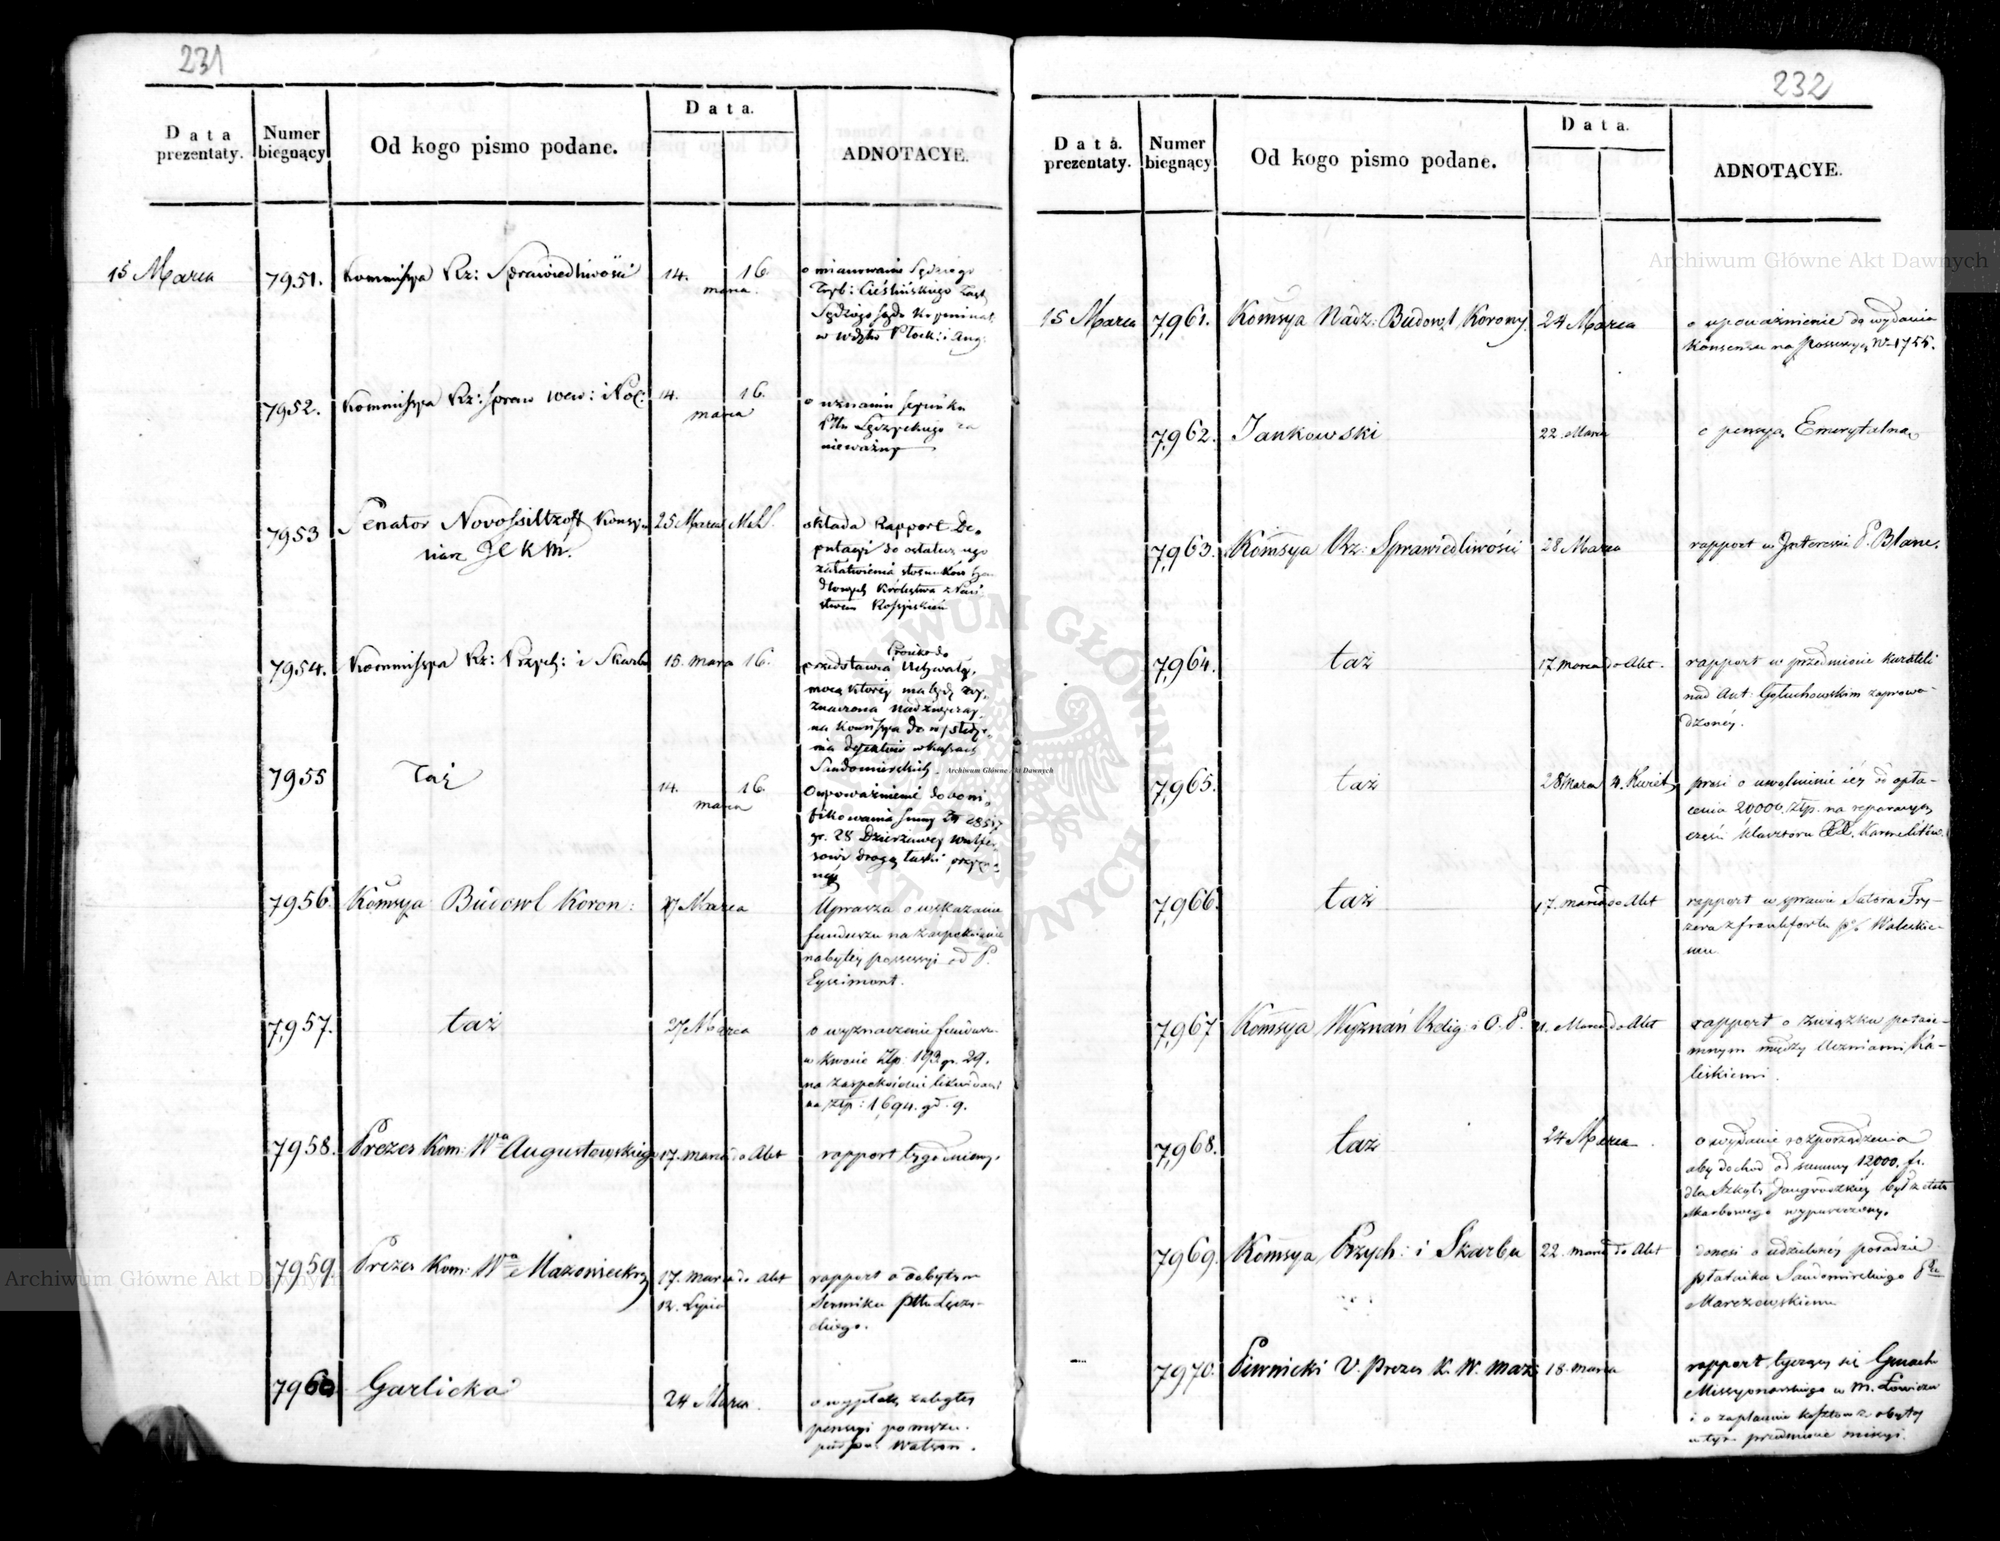 231
Data prezentaty.
Numer biegnący
Od kogo pismo podane.
Data.
ADNOTACYE.
15 Marca
7951.
Kommissya Rz: Sprawiedliwości
14. 16. marca.
o mianowanie Sędziego
Tryb: Cieślińskiego Zast:
Sędziego Sądu Kryminal:
w Wdztw Płock: i Aug:
7952.
Kommissya Rz: Spraw wew: i Pol:
14. 16. marca
o uznaniu Seymiku
Pttu Łęczyckiego za
nieważny
7953
Senator Novossiltzoff Konsy-
liarz JCKM.
25 Marca
składa Rapport De-
putacyi do ostatecznego
załatwienia stosunków han
dlowych Królestwa z Pań
stwem Rossyiskiém
7954.
Kommissya Rz: Przych: i Skarbu
15. marca 16.
Proiekt do
przedstawia Uchwały,
mocą którey ma bydź wy-
znaczona Nadzwyczay-
na Kommissya do wyśledze-
nia defektów w kassach
Sandomierskich.
7955
Taż
14. 16. marca
O upoważnienie do boni-
fikowania Summy
gr. 28 Dzierżawcy
drogą łaski przyzna-
ney
7956.
Kommsya Budowl Koron:
27 Marca
Uprasza o wskazanie
funduszu na zaspokoienie
nabytey possessyi od P.
Eysimont.
7,957.
taż
27 Marca
o wyznaczenie funduszu
w kwocie Złp: 193 gr. 29.
na zaspokoienie likwidacyi
na Złp: 1,694. gr. 9.
7958.
Prezes Kom: Wa Augustowskiego
17. marca do Akt
rapport tygodniowy.
7959.
Prezes Kom: Wa Mazowieckiego
17. marca do Akt
12. Lipca
rapport o odbytym
Seymiku pttu Łęczy-
ckiego.
7960
Garlicka
24 Marca.
o wypłatę zaległey
pensyi po mężu.
232
Data prezentaty.
Numer biegnący
Od kogo pismo podane.
Data.
ADNOTACYE.
15 Marca
7,961.
Kommsya Nadz: Budowl Korony.
24 Marca
o upoważnienie do wydania
Konsensu na Possessyę No 1755.
7,962.
Jankowski
22. Marca
o pensyą Emerytalną
7,963.
Kommsya Rz: Sprawiedliwości
28 Marca
rapport w Interessie P. Blanc.
7,964.
taż
17. Marca do Akt.
rapport w przedmiocie kurateli
nad Ant: Gołuchowskim zaprowa-
dzoney.
7,965.
taż
28 marca 4. Kwiet
prosi o uwolnienie iéy od opła-
cenia 20000 Złp. na reparacyę
części klasztoru XX. Karmelitów.
7,966.
taż
17. marca do Akt
rapport w sprawie Fry-
zera z frankfortu p/o Waleckie-
mu
7,967
Kommsya Wyznań Relig: i O. P.
21. Marca do Akt
rapport o związku potaie-
mnym między Uczniami Ka-
liskiemi.
7,968.
taż
24 Marca
o wydanie rozporządzenia
aby dochod od summy 12000. fr.
dla Szkoły był z etatu
skarbowego wypuszczony.
7,969.
Kommsya Przych: i Skarbu
22. marca do Akt
donosi o udzieloney posadzie
płatnika Sandomirskiego Pnu
Marczewskiemu
7,970.
Piwnicki V. Prezes K. W. Maz:
18. marca
rapport tyczący się Gmachu
Missyonarskiego w M. Łowiczu
i o zapłacenie kosztow z odbytey
w tym przedmiocie missyi.
Archiwum Główne Akt Dawnych
Archiwum Główne Akt Dawnych
Archiwum Główne Akt Dawnych
ARCHIWUM GŁÓWNE AKT DAWNYCH